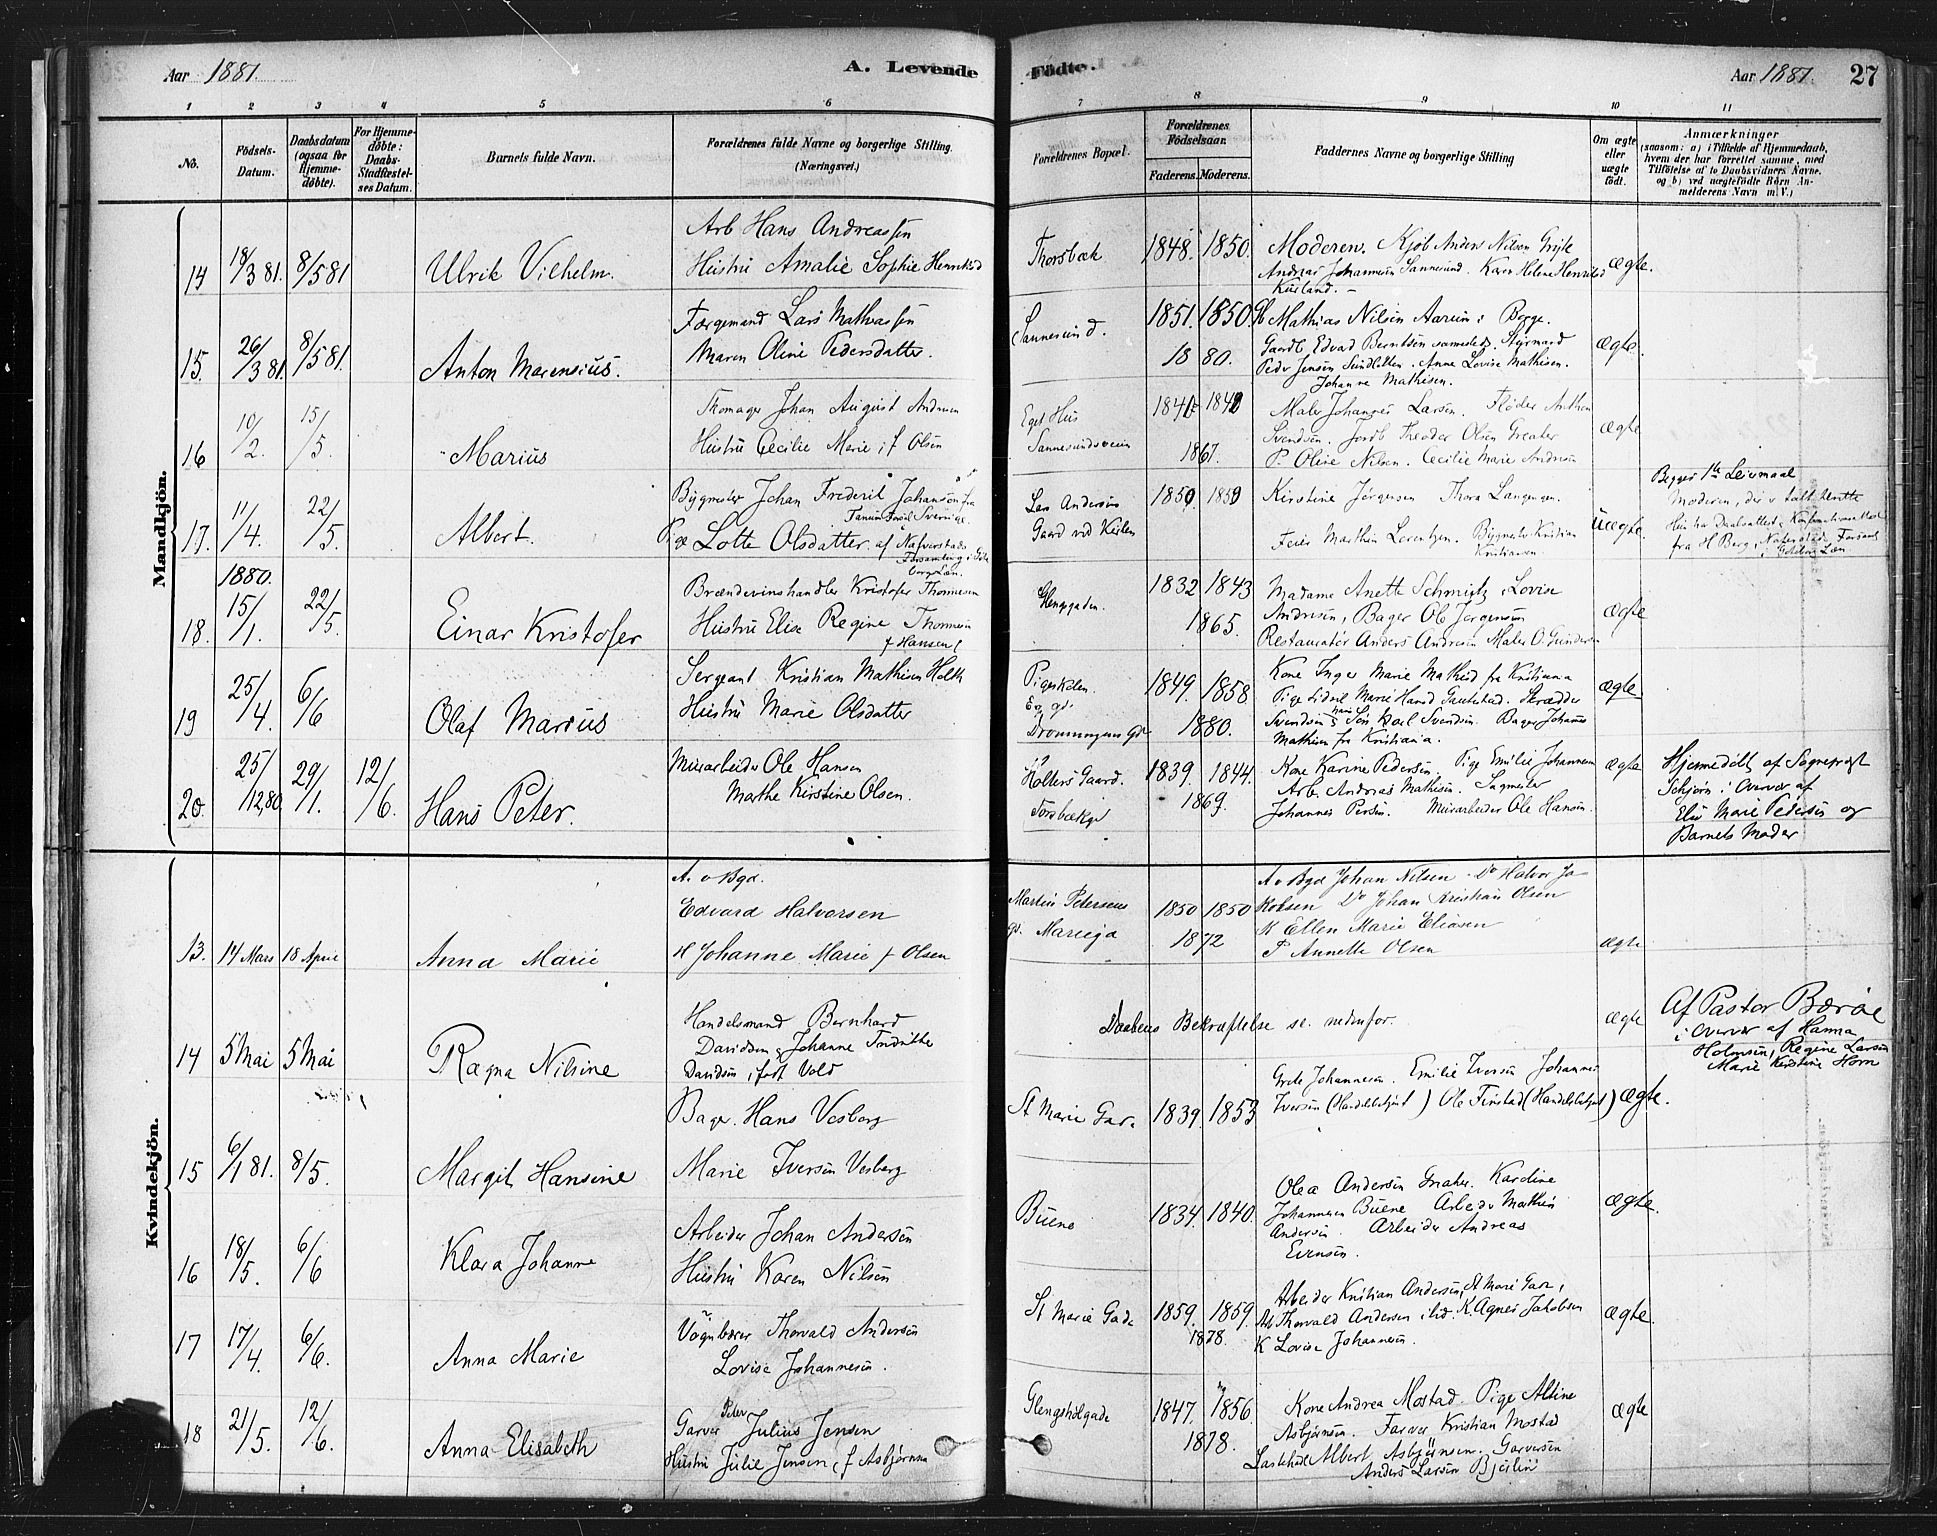 Aar 1881.
A. Levende
Fødte.
Aar 1881.
27
1 2 3 4 5 6 7 8 9 10 11
No.
Födsels-
Datum.
Daabsdatum
(ogsaa for
Hjemme-
döbte).
For Hjemme-
döbte:
Daabs-
Stadfæstel-
ses Datum.
Barnets fulde Navn.
Forældrenes fulde Navne og borgerlige Stilling.
(Næringsvei.)
Forældrenes Bopæl.
Forældrenes
Födselsaar.
Faderens. Moderens.
Faddernes Navne og borgerlige Stilling
Om ægte
eller
uægte
födt.
Anmærkninger
(saasom: a) i Tilfælde af Hjemmedaab,
hvem der har forrettet samme, med
Tilföielse af to Daabsvidners Navne.
og b) ved uægtefödte Börn An-
melderens Navn m. V.)
Mandkjön.
Arb Hans Andreassen
14 18/3 81. 8/5 81 Ulrik Vilhelm. Hustru Amalie Sophie
Thorsbæk 1848. 1850. Moderen. Kjöb Anders Nilsen
Andreas Johannesen Sannesund. Karen Helene
ægte.
Færgemand Lars Mathiassen
15. 26/3 81. 8/5 81 Anton Marensius. Maren Oline Pedersdatter.
Sannesund. 1851. 1850. Mathias Nilsen Aarum i Borge.
1880. Gaardb Edvad Berntsen samesteds. Styrmand
Peder Jensen. Anna Lovise Mathisen.
Johanne Mathisen.
ægte.
Johan August Andersen
16 10/2. 15/5. Marius Hustru Cecilie Marie, f Olsen
Eget Hus
Sannesundsveien
1867.
Maler Johannes Larsen. Fløder Anthon
Svendsen. Jordb Theodor Olsen Greaker
P. Oline Nilsen. Cecilie Marie Andersen
ægte
Bygmester Johan Frederik Johansen fra
Tanum Sverige.
17. 11/4. 22/5. Albert. Pige Lotte Olsdatter af Nafverstads
Forsamling i Göte
borgs Læn.
Lars Andersens
Gaard ved Kirken
1859 1859 Kirstine Jørgensen Thora Langengen.
Feier Marthin Lorentzen. Bygmester Kristian
Kristiansen
uægte.
Begges 1te Leiermaal
Moderen, der
fra H Berg,
18. 1880. 15/1. 22/5. Einar Kristofer
Brændevinshandler Kristofer Thomesen
Hustru Elise Regine Thomesen
f Hansen
Glengsgaden. 1832 1843
1865.
Madame Anette Schmidtz, Lovise
Andresen, Bager Ole Jørgensen
Restauratör Anders Andresen Maler O. Gundersen
ægte
Sergeant Kristian Mathisen Holth
19 25/4. 6/6 Olaf Marius Hustru Marie Olsdatter
1849. 1858.
1880.
Dronningens Gd
Kone Inger Marie Mathisen fra Kristiania
Svendsen, hans Søn Karl Svendsen. Bager Johannes
Mathisen fra Kristiania.
ægte
Murarbeider Ole Hansen
20. 25/12,80 29/1. 12/6. Hans Peter. Marthe Kirstine Olsen.
Holters Gaard. 1839. 1844.
Torsbækgd 1869.
Kone Karine Pedersen Pige Emilie Johannesen
Arb. Andreas Mathisen. Sagmester
Johannes Persen. Murarbeider Ole Hansen.
ægte
Hjemmedöbt af Sognepræst
Schjørn i Overvær af
Elen Marie Pedersen og
Barnets Moder
Kvindekjön.
A. v Bgd.
Edvard Halvorsen
13. 14 Mars 18 April Anna Marie H Johanne Marie f Olsen
Martin Petersens
1850 1850
1872
A v Bgd Johan Nilsen. Do Halvor Ja
kobsen Do Johan Kristian Olsen
K Ellen Marie Eliasen
P Annette Olsen
ægte
Handelsmand Bernhard
14 5 Mai 5 Mai Ragna Nilsine Davidsen, Johanne
Davidsen, født Vold
Daabens Bekræftelse se nedenfor.
ægte
Af Pastor Bærøe
i Overvær af Hanna
Holmsen, Regine Larsen
Marie Kirstine Horn
Bager Hans Vesberg
15 6/1 81. 8/5. Margit Hansine Marie Iversen Vesberg
St Marie Gade 1839. 1853
Grete Johannesen. Emilie Iversen Johannes
Iversen (Handelsbetjent) Ole Finstad (Handelsbetjent)
ægte.
Arbeider Johan Andersen
16 18/5. 6/6 Klara Johanne Hustru Karen Nilsen
Buene 1834. 1840.
Olea Andersen Greaker. Karoline
Johannesen Buene Arbeder Mathias
Andersen. Arbeider Andreas
Evensen.
ægte.
Vognbører Thorvald Andersen
17 17/4. 6/6. Anna Marie Lovise Johannesen.
St Marie Gade 1859. 1859.
1878.
Arbeider Kristian Andersen, St Marie Gade,
Arb Thorvald Andersen ibid. K Agnes Jakobsen
K Lovise Johannesen.
ægte.
Garver Peter Julius Jensen
18 21/5. 12/6. Anna Elisabeth Hustru Julie Jensen, f Asbjørnsen
Glengshölgade 1847. 1856.
1878.
Kone Andrea Mostad. Pige Altine
Asbjørnsen. Farver Kristian Mostad
Albert Asbjørnsen. Garversven
Anders Larsen
ægte